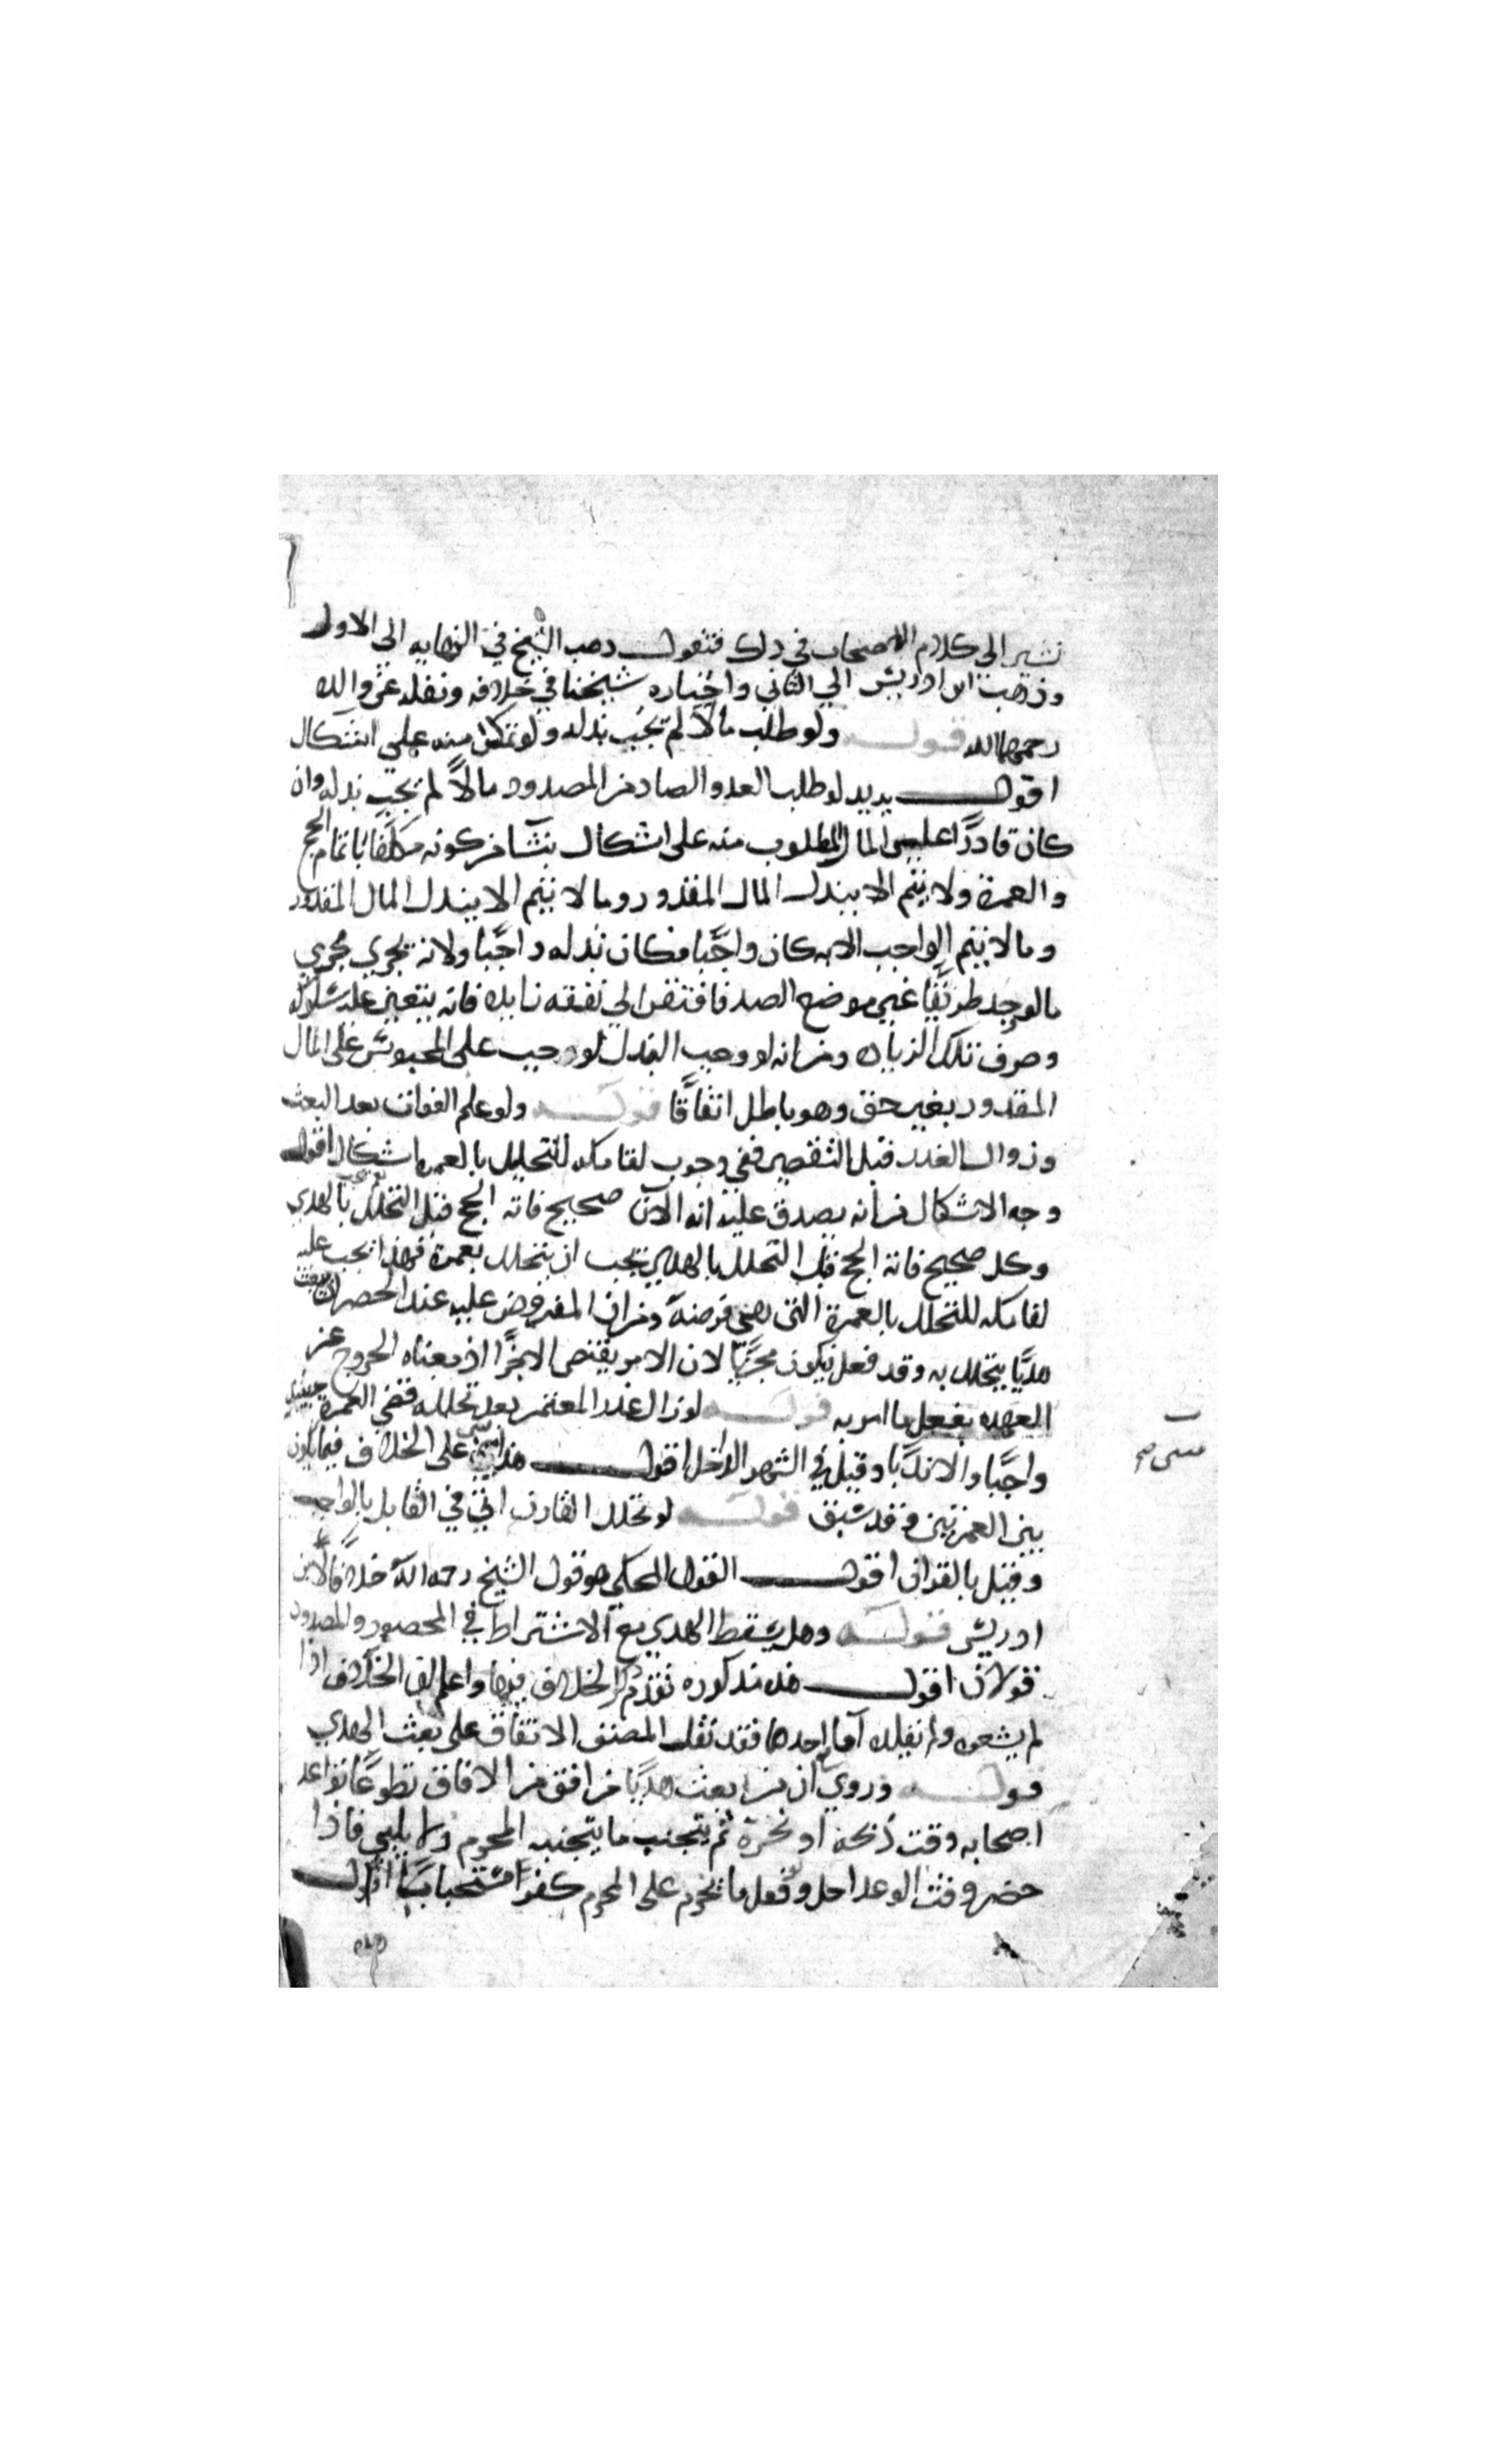 نشير الى كلام الاصحاب في ذلك فنقول ذهب الشيخ في النهايه الى الاول
وذهب ابن ادريس الى الثاني واختاره شيخنا في خلافه ونقله عن والده
رحمهما الله قوله ولو طلب مالا لم يجب بذله ولو تمكن منه على اشكال
اقول يريد لو طلب العدو الصاد من المصدود مالاً لم يجب بذله وان
كان قادرًا على المال المطلوب منه على اشكال ينشا من كونه مكلفا باتمام الحج
والعمرة ولا يتم الا ببذل المال المقدور وما لا يتم الا ببذل المال المقدور
وما لا يتم الواجب الا به كان واجبًا فكان بذله واجبًا ولانه يجري مجرى
ما لو وجد طريقًا غير موضع الصد فافتقر الى نفقه زايده فانه يتعين عليه سلوكه
وصرف تلك الزياده ومن انه لو وجب البذل لوجب على المحبوس على المال
المقدور بغير حق وهو باطل اتفاقًا قوله ولو علم الفوات بعد البعث
وزوال العذر قبل التقصير ففي وجوب لقا مكه للتحليل بالعمره اشكال اقول
وجه الاشكال من انه يصدق عليه انه الان صحيح فاته الحج قبل التحلل بالهدي
وكل صحيح فاته الحج قبل التحلل بالهدي يجب ان يتحلل بعمرة فهذا يجب عليه
لقا مكه للتحلل بالعمرة التي هي فرضه ومن ان المفروض عليه عند الحصر ان يبعث
هديًا يتحلل به وقد فعل فيكون مجزيًا لان الامر يقتضي الاجزا اذ معناه الخروج عن
العهده بفعل ما امر به قوله لو زال عذر المعتمر بعد تحلله قضى العمرة حينئذ
واجبًا والا ندبًا وقيل في الشهر الداخل اقول هذا مبني على الخلاف فيما يكون
بين العمرتين وقد سبق قوله لو تحلل القارن اتى في القابل بالواجب
وقيل بالقران اقول القول المحكي هو قول الشيخ رحمه الله خلافًا لابن
ادريس قوله وهل يسقط الهدي مع الاشتراط في المحصور والمصدود
قولان اقول هذه مذكوره تقدم ذكر الخلاف فيها واعلم ان الخلاف اذا
لم يشعره ولم يقلده اما احدها فقد نقل المصنف الاتفاق على بعث الهدي
قوله وروي ان من بعث هديًا من افق من الافاق تطوعًا يواعد
اصحابه وقت ذبحه او نحره ثم يتجنب ما يتجنبه المحرم ولا يلبي فاذا
حضر وقت الوعد احل ولو فعل ما يحرم على المحرم كفر استحبابًا اقول